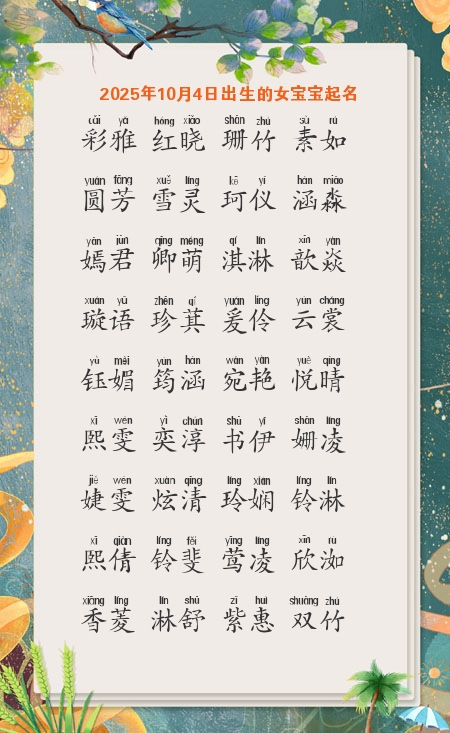 2025年10月4日出生的女宝宝起名
cǎi yǎ hóng xiǎo shān zhú sù rú
彩雅 红晓 珊竹 素如
yuán fāng xuě líng kē yí hán miǎo
圆芳 雪灵 珂仪 涵淼
yān jūn qīng méng qí lín xīn yàn
嫣君 卿萌 淇淋 歆焱
xuán yǔ zhēn qí yuán líng yún cháng
璇语 珍萁 爰伶 云裳
yù měi yún hán wǎn yàn yuè qíng
钰媚 筠涵 宛艳 悦晴
xī wén yì chún shū yī shān líng
熙雯 奕淳 书伊 姗凌
jié wén xuàn qīng líng xián líng lín
婕雯 炫清 玲娴 铃淋
xī qiàn líng fěi yīng líng xīn rù
熙倩 铃斐 莺凌 欣洳
xiāng líng lín shū zǐ huì shuāng zhú
香菱 淋舒 紫惠 双竹